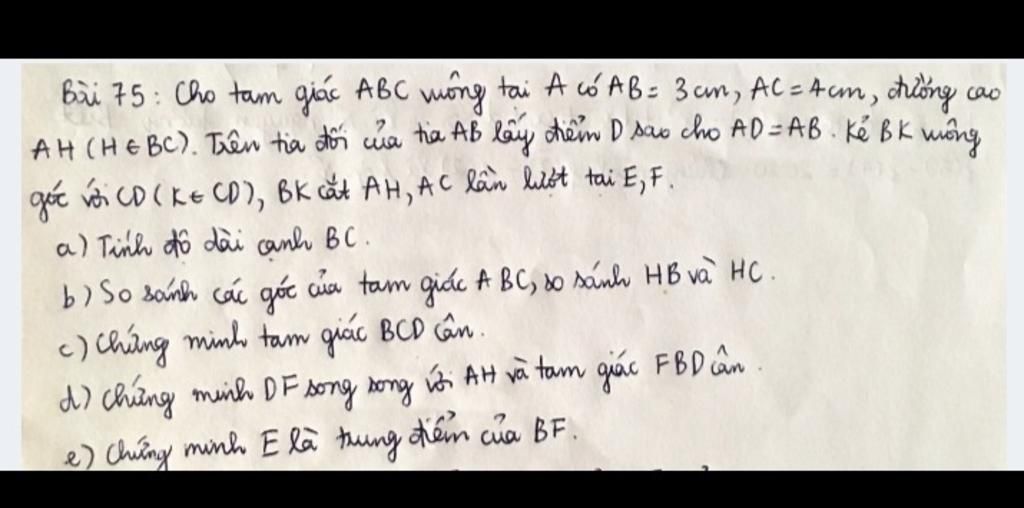 Bài 75: Cho tam giác ABC vuông tại A có AB = 3cm, AC = 4cm, đường cao
AH (H ∈ BC). Trên tia đối của tia AB lấy điểm D sao cho AD = AB. Kẻ BK vuông
góc với CD (K ∈ CD), BK cắt AH, AC lần lượt tại E, F.
a) Tính độ dài cạnh BC.
b) So sánh các góc của tam giác ABC, so sánh HB và HC.
c) Chứng minh tam giác BCD cân.
d) Chứng minh DF song song với AH và tam giác FBD cân.
e) Chứng minh E là trung điểm của BF.